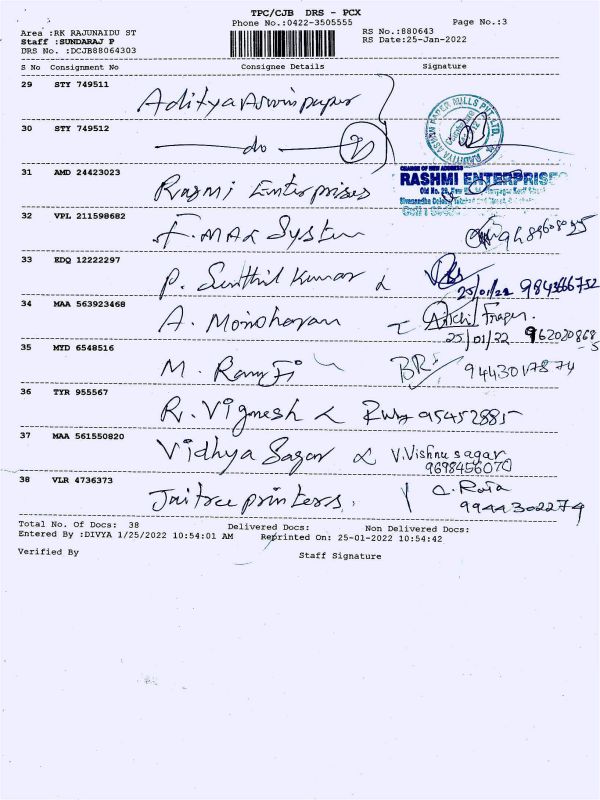 TPC/CJB DRS - PCX
Phone No.:0422-3505555 Page No.:3
Area :RK RAJUNAIDU ST RS No.:880643
Staff :SUNDARAJ P RS Date:25-Jan-2022
DRS No. :DCJB88064303
S No Consignment No Consignee Details Signature
29 STY 749511
Aditya Aswin paper
30 STY 749512
do
31 AMD 24423023
CHANGE OF NEW ADDRESS
RASHMI ENTERPRISES
Rasmi Enterprises
32 VPL 211598682
F. MAX System
33 EDQ 12222297
P. Senthil Kumar
25/01/22 9843666732
34 MAA 563923468
A. Monoharan
25/01/22 9620208685
35 MYD 6548516
M. Ramji BR 9443017874
36 TYR 955567
R. Vignesh 95452885
37 MAA 561550820
Vidhya Sagar V. Vishnu sagar
9698456070
38 VLR 4736373
Jaitree printers. C. Raja
9944302274
Total No. Of Docs: 38 Delivered Docs: Non Delivered Docs:
Entered By :DIVYA 1/25/2022 10:54:01 AM Reprinted On: 25-01-2022 10:54:42
Verified By Staff Signature